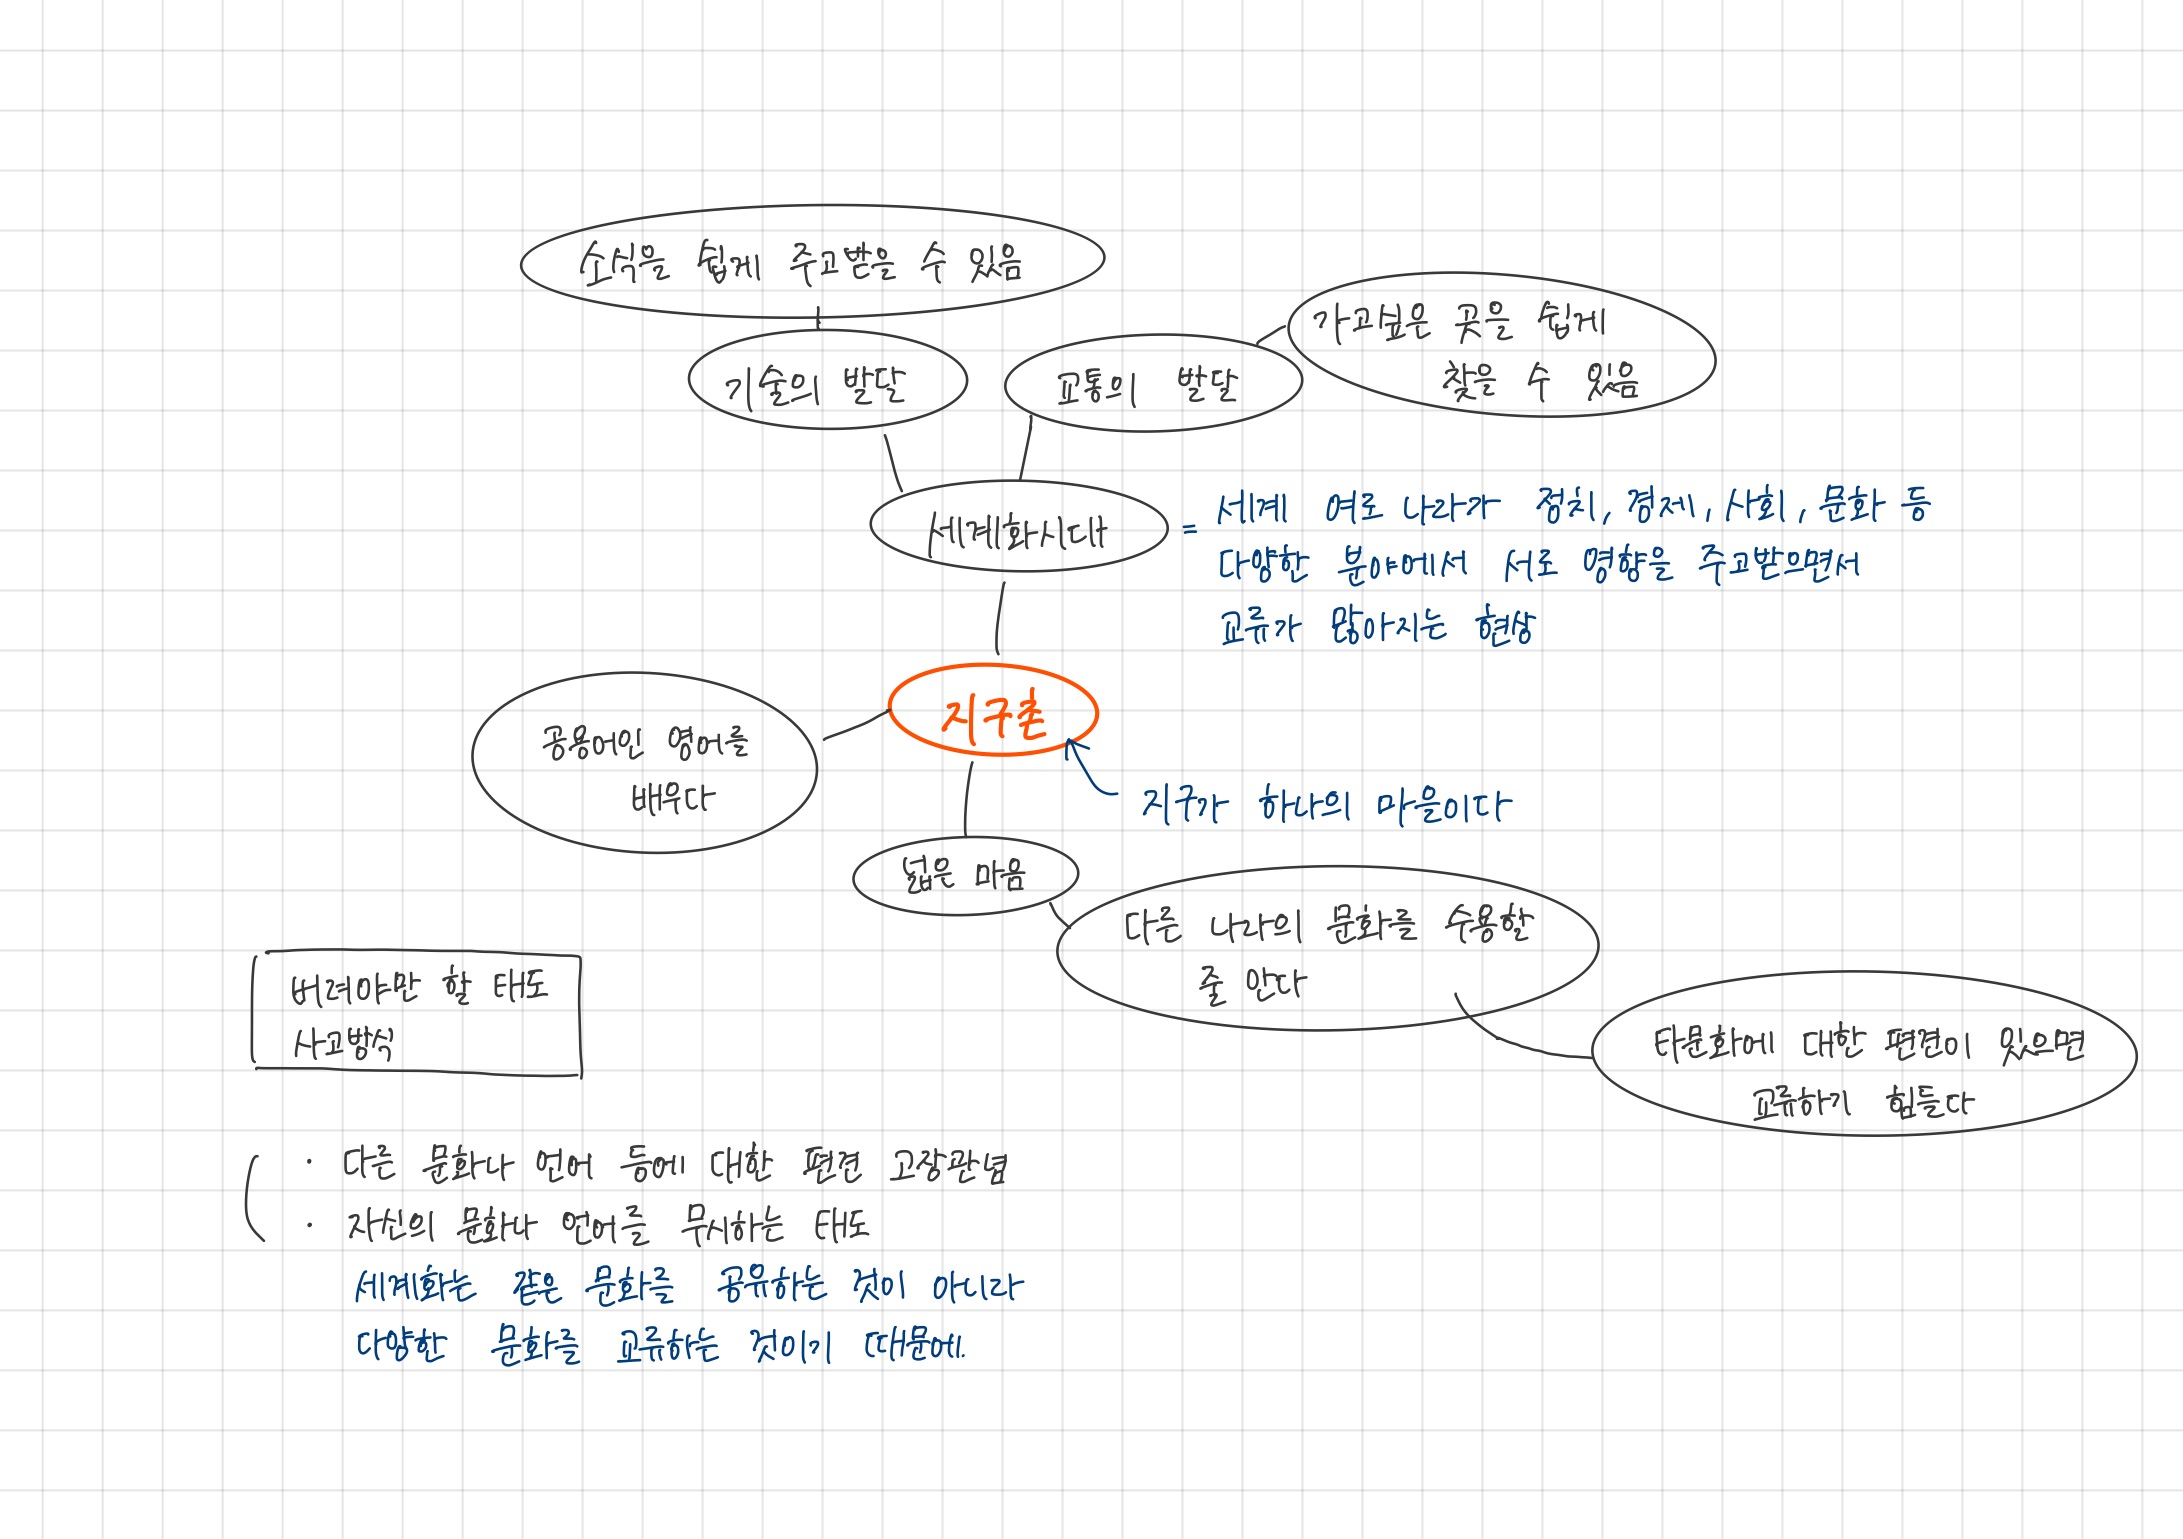 소식을 쉽게 주고받을 수 있음
가고싶은 곳을 쉽게
찾을 수 있음
기술의 발달
교통의 발달
세계화시대
= 세계 여로 나라가 정치, 경제, 사회, 문화 등
다양한 분야에서 서로 영향을 주고받으면서
교류가 많아지는 현상
지구촌
공용어인 영어를
배우다
지구가 하나의 마을이다
넓은 마음
다른 나라의 문화를 수용할
줄 안다
타문화에 대한 편견이 있으면
교류하기 힘들다
버려야만 할 태도
사고방식
· 다른 문화나 언어 등에 대한 편견 고장관념
· 자신의 문화나 언어를 무시하는 태도
세계화는 같은 문화를 공유하는 것이 아니라
다양한 문화를 교류하는 것이기 때문에.